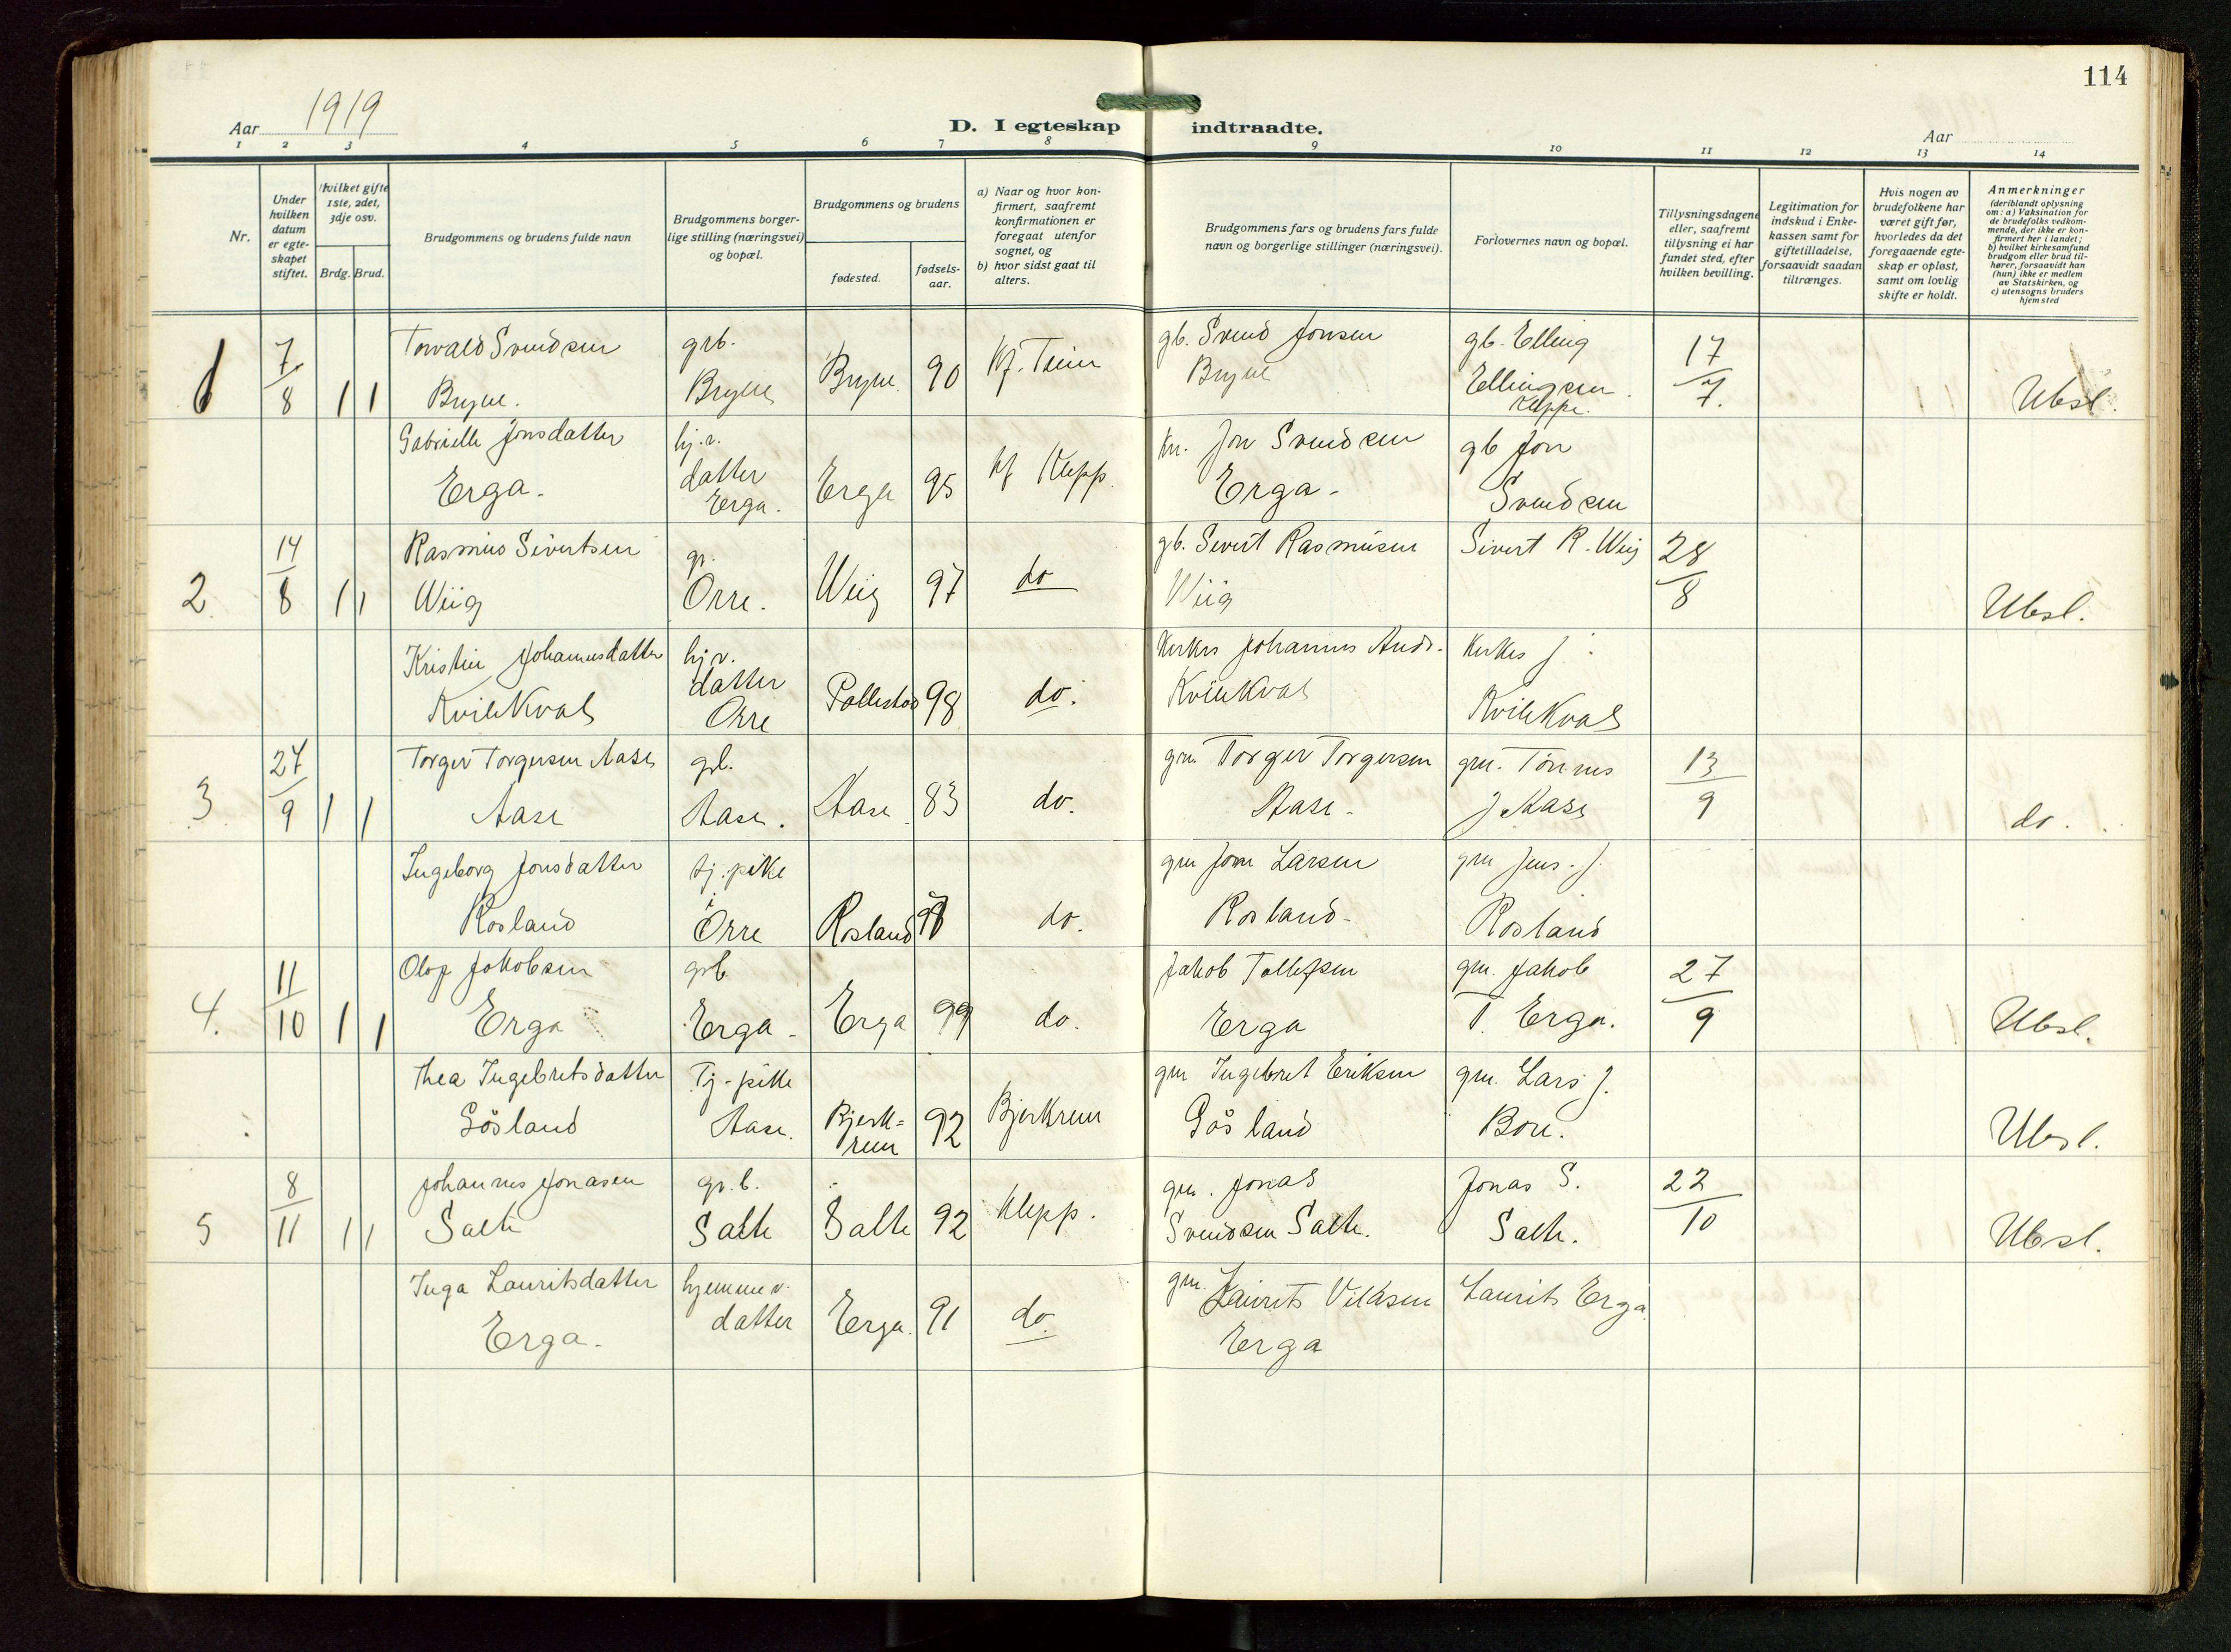 114
Aar 1919
D. I egteskap indtraadte.
Aar
1 2 3 4 5 6 7 8 9 10 11 12 13 14
Nr.
Under
hvilken
datum
er egte-
skapet
stiftet.
Hvilket gifte
1ste, 2det,
3dje osv.
Brdg. Brud.
Brudgommens og brudens fulde navn
Brudgommens borger-
lige stilling (næringsvei)
og bopæl.
Brudgommens og brudens
fødested.
fødsels-
aar.
a) Naar og hvor kon-
firmert, saafremt
konfirmationen er
foregaat utenfor
sognet, og
b) hvor sidst gaat til
alters.
Brudgommens fars og brudens fars fulde
navn og borgerlige stillinger (næringsvei).
Forlovernes navn og bopæl.
Tillysningsdagene
eller, saafremt
tillysning ei har
fundet sted, efter
hvilken bevilling.
Legitimation for
indskud i Enke-
kassen samt for
giftetilladelse,
forsaavidt saadan
tiltrænges.
Hvis nogen av
brudefolkene har
været gift før,
hvorledes da det
foregaaende egte-
skap er opløst,
samt om lovlig
skifte er holdt.
Anmerkninger
(deriblandt oplysning
om: a) Vaksination for
de brudefolks vedkom-
mende, der ikke er kon-
firmert her i landet;
b) hvilket kirkesamfund
brudgom eller brud til-
hører, forsaavidt han
(hun) ikke er medlem
av Statskirken, og
c) utensogns bruders
hjemsted
1 7/8 1 1 Torvald Svendsen grb. Bryne 90 Kf. Time gb. Svend Jonsen gb. Elling 17/7
Bryne. Bryne Bryne Ellingsen Ubsl.
Kleppe.
Gabrielle Jonsdatter hj.v. Kn. Jon Svendsen gb Jon
Erga. datter Erga 95 kf Klepp. Erga. Svendsen
Erga.
2 14/8 1 1 Rasmus Sivertsen gr. Wiig 97 do gb. Sivert Rasmusen Sivert R. Wiig 28/8
Wiig Orre. Wiig Ubsl.
Kristin Johannesdatter hj v. Johannes J
KvileKval datter Pollestad 98 do. KvileKval KvileKval
Orre
3 27/9 1 1 Torger Torgersen Aase gb. Aase 83 do. gm. Torger Torgersen gm. Tönnes 13/9
Aase Aase. Aase. J Aase do.
Ingeborg Jonsdatter tj. pike gm Jon Larsen gm Jens. J.
Rosland Orre Rosland do. Rosland Rosland
4. 11/10 1 1 Olaf Jakobsen grb Erga 99 do. Jakob Tollefsen gm. Jakob 27/9
Erga Erga Erga T. Erga. Ubsl.
Thea Ingebretsdatter Tj-pike Bjerk= 92 Bjerkrem gm Ingebret Eriksen gm. Lars J.
Gösland Aase. rem Gösland Bore. Ubsl.
5 8/11 1 1 Johannes Jonasen gr.b. Salte 92 Klepp. gm. Jonas Jonas S. 22/10
Salte Salte Svendsen Salte. Salte. Ubsl.
Inga Lauritsdatter hjemmev. Erga. 91 do. gm. Laurits Laurits Erga
Erga. datter Erga